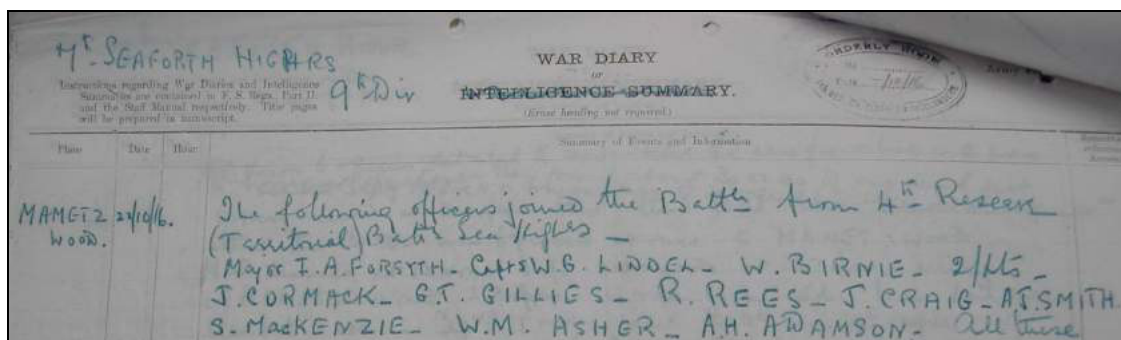 7th SEAFORTH HIGHRS
9th Div
Instructions regarding War Diaries and Intelligence
Summaries are contained in F. S. Regs., Part II.
and the Staff Manual respectively. Title pages
will be prepared in manuscript.
WAR DIARY
or
INTELLIGENCE SUMMARY.
(Erase heading not required.)
ORDERLY ROOM
Place Date Hour Summary of Events and Information
MAMETZ WOOD. 22/10/16.
The following officers joined the Battn from 4th Reserve
(Territorial) Battn Sea Highrs —
Major I.A. FORSYTH - Capts W.G. LINDEL - W. BIRNIE - 2/Lts -
J. CORMACK - G.T. GILLIES - R. REES - J. CRAIG - A.J. SMITH
S. MacKENZIE - W.M. ASHER - A.H. ADAMSON - All these